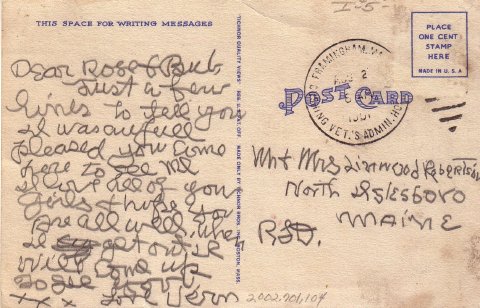 THIS SPACE FOR WRITING MESSAGES
Dear Rose & Bub,
Just a few
lines to tell you
I was awfull
pleased you come
here to see me
I love all of you
Girls & hope you
are all well, when
I get out I
will come up
Love Vern
x x x
"TICHNOR QUALITY VIEWS" REG. U. S. PAT. OFF. MADE ONLY BY TICHNOR BROS. INC., BOSTON, MASS.
I-5-
PLACE
ONE CENT
STAMP
HERE
MADE IN U.S.A
FRAMINGHAM, MA
AUG 2
VET.'S ADMIN. HO
POST CARD
Mr & Mrs Linwood Robertson
North Islesboro
MAINE
RFD.
2002.201.104